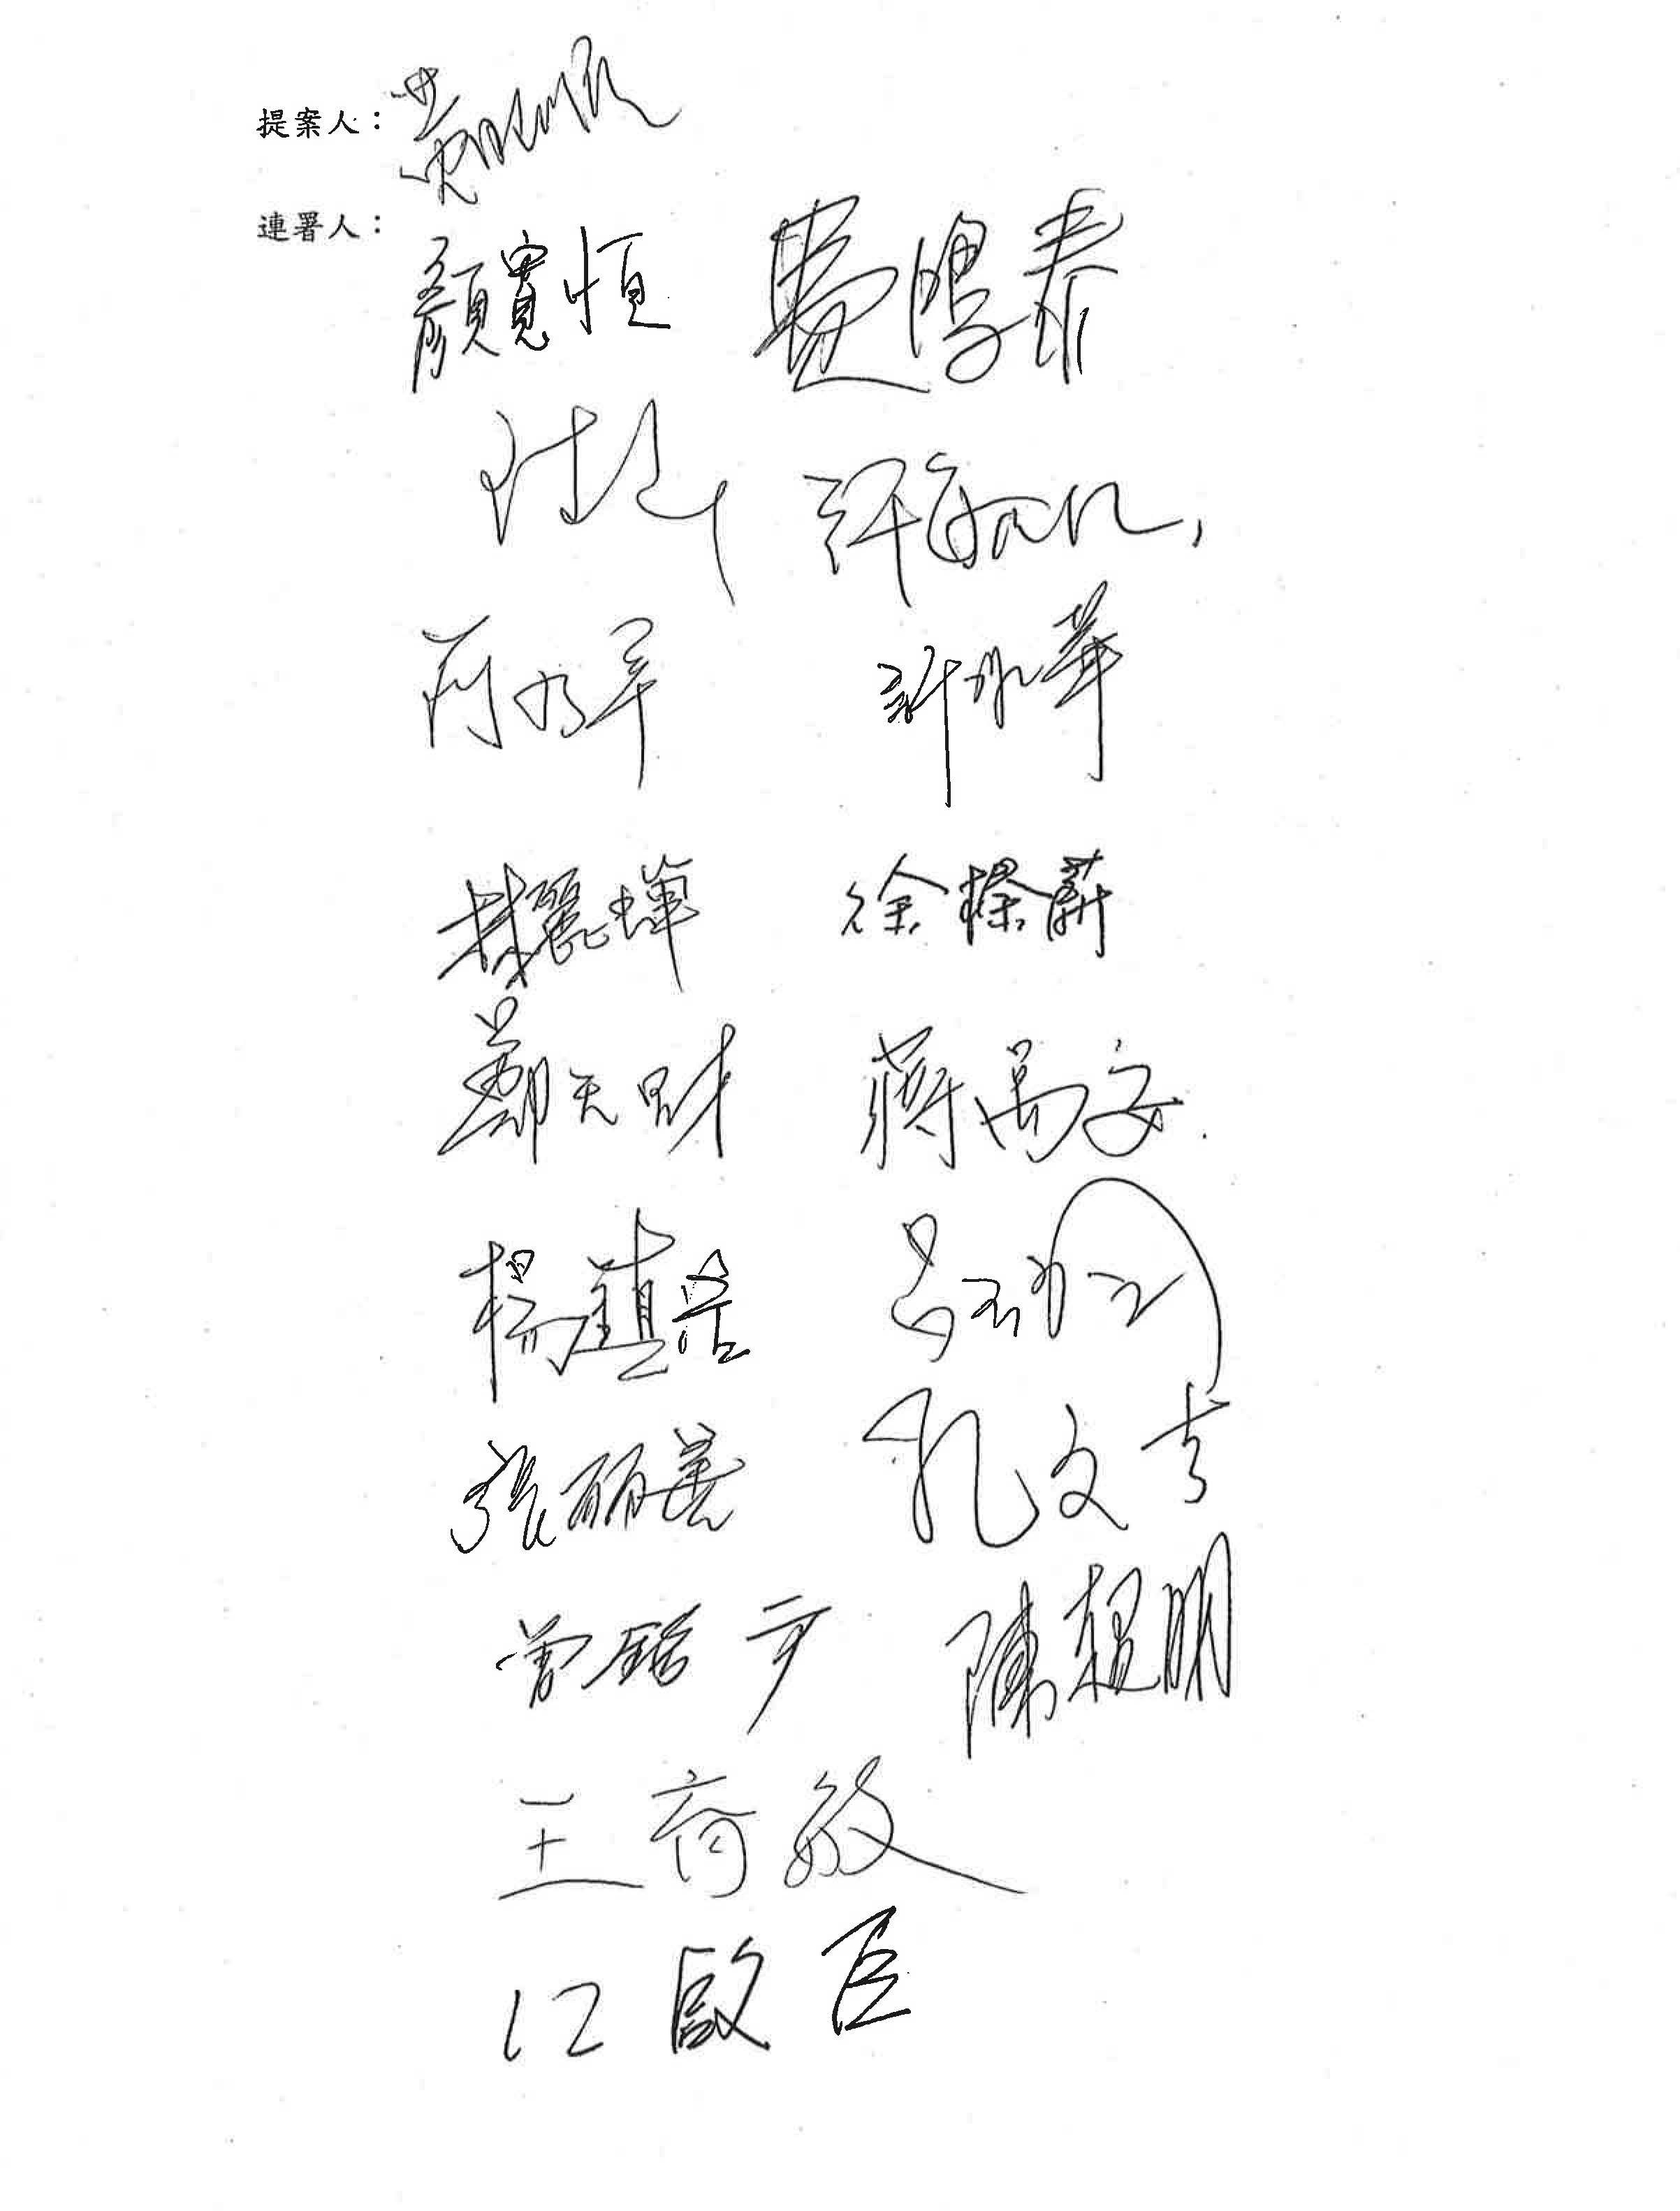 提案人：
連署人：
顏寬恒 費鴻泰
許毓仁
許淑華
林麗蟬 徐榛蔚
鄭天財 蔣萬安
楊鎮浯
張麗善 孔文吉
曾銘宗 陳超明
王育敏
江啟臣